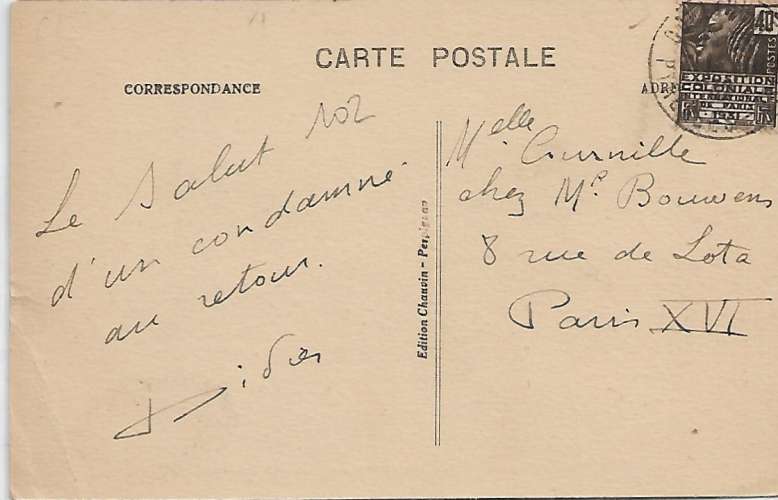 CARTE POSTALE
CORRESPONDANCE
Le salut 102
d'un condamné
au retour.
Edition Chauvin - Perpignan
40c
POSTES
EXPOSITION
COLONIALE
INTERNATIONALE
PARIS 1931
Melle Cournille
chez Mr Bouwens
8 rue de Lota
Paris XVI